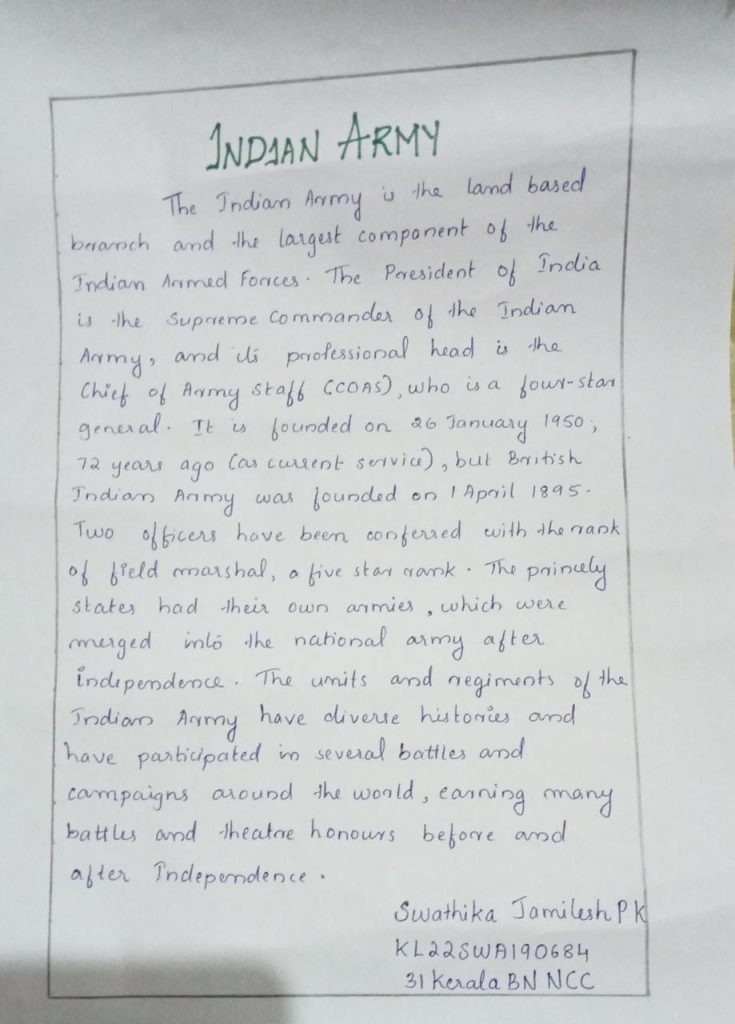 INDIAN ARMY
The Indian Army is the land based
branch and the largest component of the
Indian Armed Forces. The President of India
is the Supreme Commander of the Indian
Army, and its professional head is the
Chief of Army Staff (COAS), who is a four-star
general. It is founded on 26 January 1950;
72 years ago (as current service), but British
Indian Army was founded on 1 April 1895.
Two officers have been conferred with the rank
of field marshal, a five star rank. The princely
states had their own armies, which were
merged into the national army after
independence. The units and regiments of the
Indian Army have diverse histories and
have participated in several battles and
campaigns around the world, earning many
battles and theatre honours before and
after Independence.
Swathika Jamilesh P K
KL22SWA190684
31 Kerala BN NCC